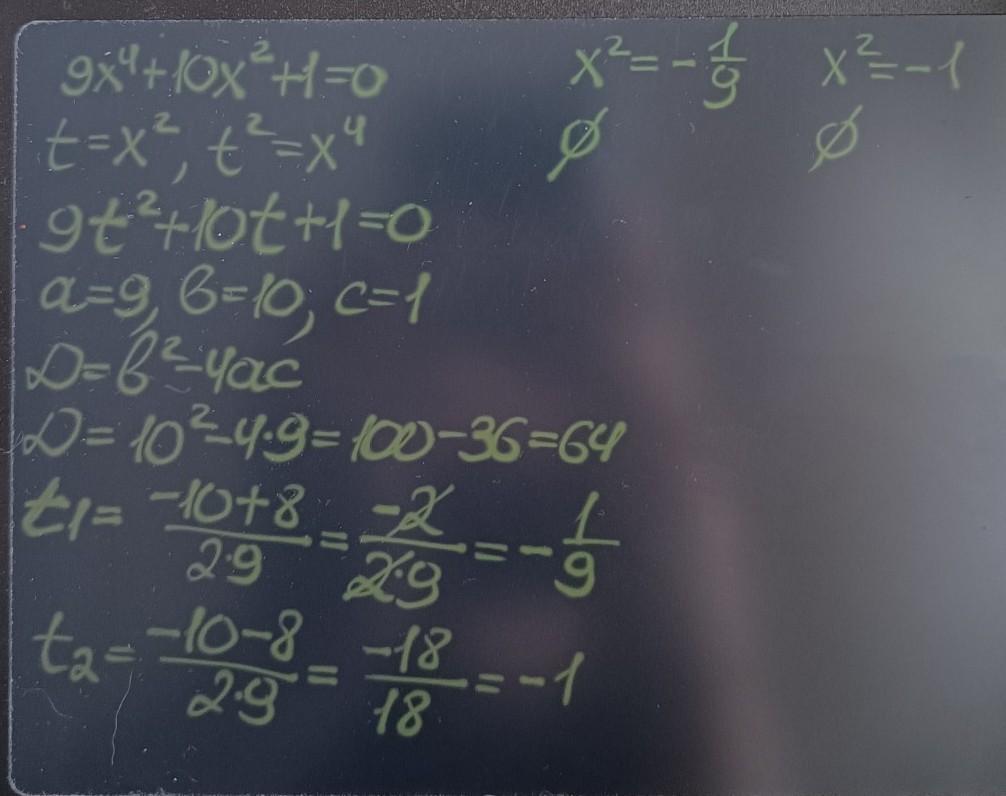 9x⁴+10x²+1=0
t=x², t²=x⁴
9t²+10t+1=0
a=9, в=10, c=1
D=в²-4ac
D=10²-4·9=100-36=64
t₁=(-10+8)/(2·9)=(-2)/(2·9)=-1/9
t₂=(-10-8)/(2·9)=(-18)/18=-1
x²=-1/9
∅
x²=-1
∅